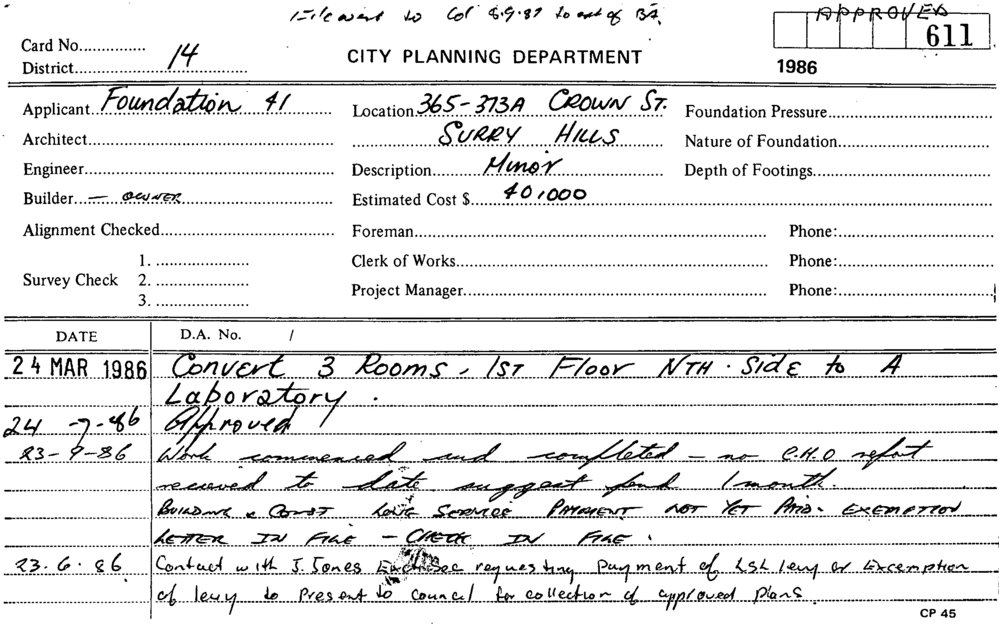 File went to Col 8.9.87 to out of BA
APPROVED
611
1986
Card No.
District 14
CITY PLANNING DEPARTMENT
Applicant Foundation 41 Location 365-373A CROWN ST. Foundation Pressure
Architect SURRY HILLS Nature of Foundation
Engineer Description Minor Depth of Footings
Builder — OWNER Estimated Cost $ 40,000
Alignment Checked Foreman Phone:
1. Clerk of Works Phone:
Survey Check 2.
3. Project Manager Phone:
DATE D.A. No. /
24 MAR 1986 Convert 3 Rooms - 1ST Floor NTH. Side to A
Laboratory.
24 -7-86 Approved
23-9-86 Work commenced and completed - no C.H.O refort
recieved to date suggest pend 1 month.
BUILDING & CONST LONG SERVICE PAYMENT NOT YET PAID. EXEMPTION
LETTER IN FILE - CHECK IN FILE.
23.6.86 Contact with J. Jones requesting payment of LSL levy or Excemption
of levy to Present to council for collection of approved plans.
CP 45